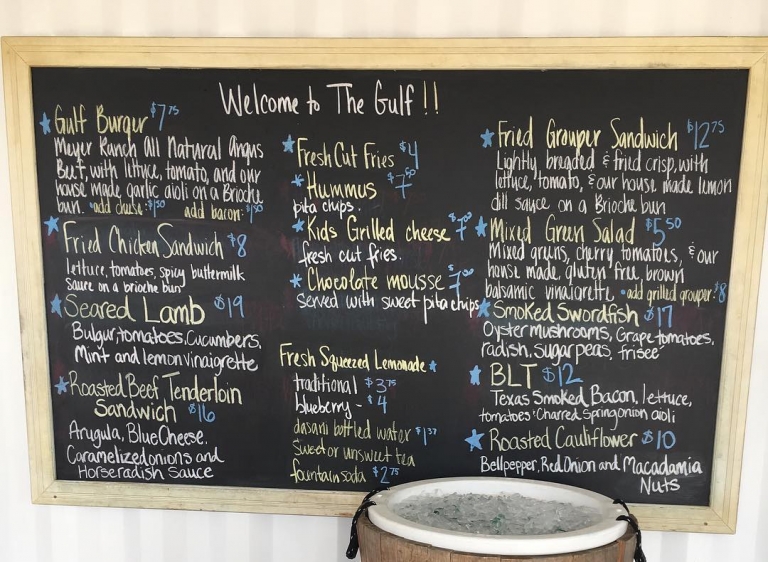 Welcome to The Gulf!!
Gulf Burger $7.75
Meyer Ranch All Natural Angus
Beef, with lettuce, tomato, and our
house made garlic aioli on a Brioche
bun. •add cheese: $1.50 add bacon: $1.50
Fried Chicken Sandwich $8
lettuce, tomatoes, spicy buttermilk
sauce on a brioche bun
Seared Lamb $19
Bulgur, tomatoes, Cucumbers,
Mint and lemon vinaigrette
Roasted Beef Tenderloin
Sandwich $16
Arugula, Blue Cheese,
Caramelized onions and
Horseradish Sauce
Fresh Cut Fries $4
Hummus $7.50
pita chips.
Kids Grilled cheese $7.00
fresh cut fries.
Chocolate mousse $7.00
Served with sweet pita chips
Fresh Squeezed Lemonade
traditional $3.75
blueberry - $4
dasani bottled water $1.37
Sweet or unsweet tea
fountain soda $2.75
Fried Grouper Sandwich $12.75
Lightly breaded & fried crisp, with
lettuce, tomato, & our house made lemon
dill sauce on a Brioche bun
Mixed Green Salad $5.50
Mixed greens, cherry tomatoes, & our
house made gluten free brown
balsamic vinaigrette •add grilled grouper: $8
Smoked Swordfish $17
Oyster mushrooms, Grape tomatoes,
radish, sugar peas, frisee
BLT $12
Texas Smoked Bacon, lettuce,
tomatoes, Charred Spring onion aioli
Roasted Cauliflower $10
Bellpepper, Red Onion and Macadamia
Nuts